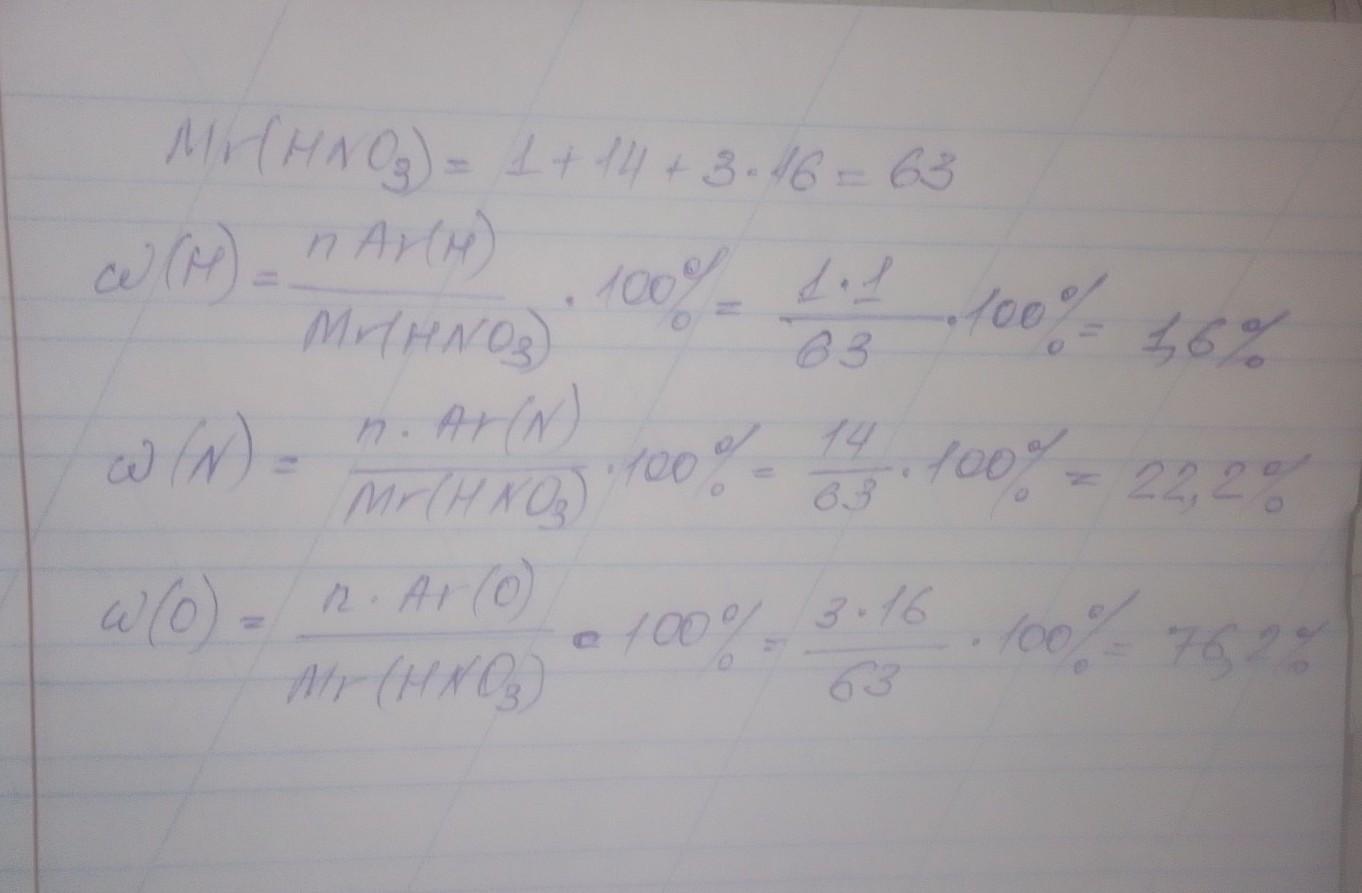 Mr(HNO₃) = 1 + 14 + 3 · 16 = 63
ω(H) = n Ar(H) / Mr(HNO₃) · 100% = 1 · 1 / 63 · 100% = 1,6%
ω(N) = n · Ar(N) / Mr(HNO₃) · 100% = 14 / 63 · 100% = 22,2%
ω(O) = n · Ar(O) / Mr(HNO₃) · 100% = 3 · 16 / 63 · 100% = 76,2%